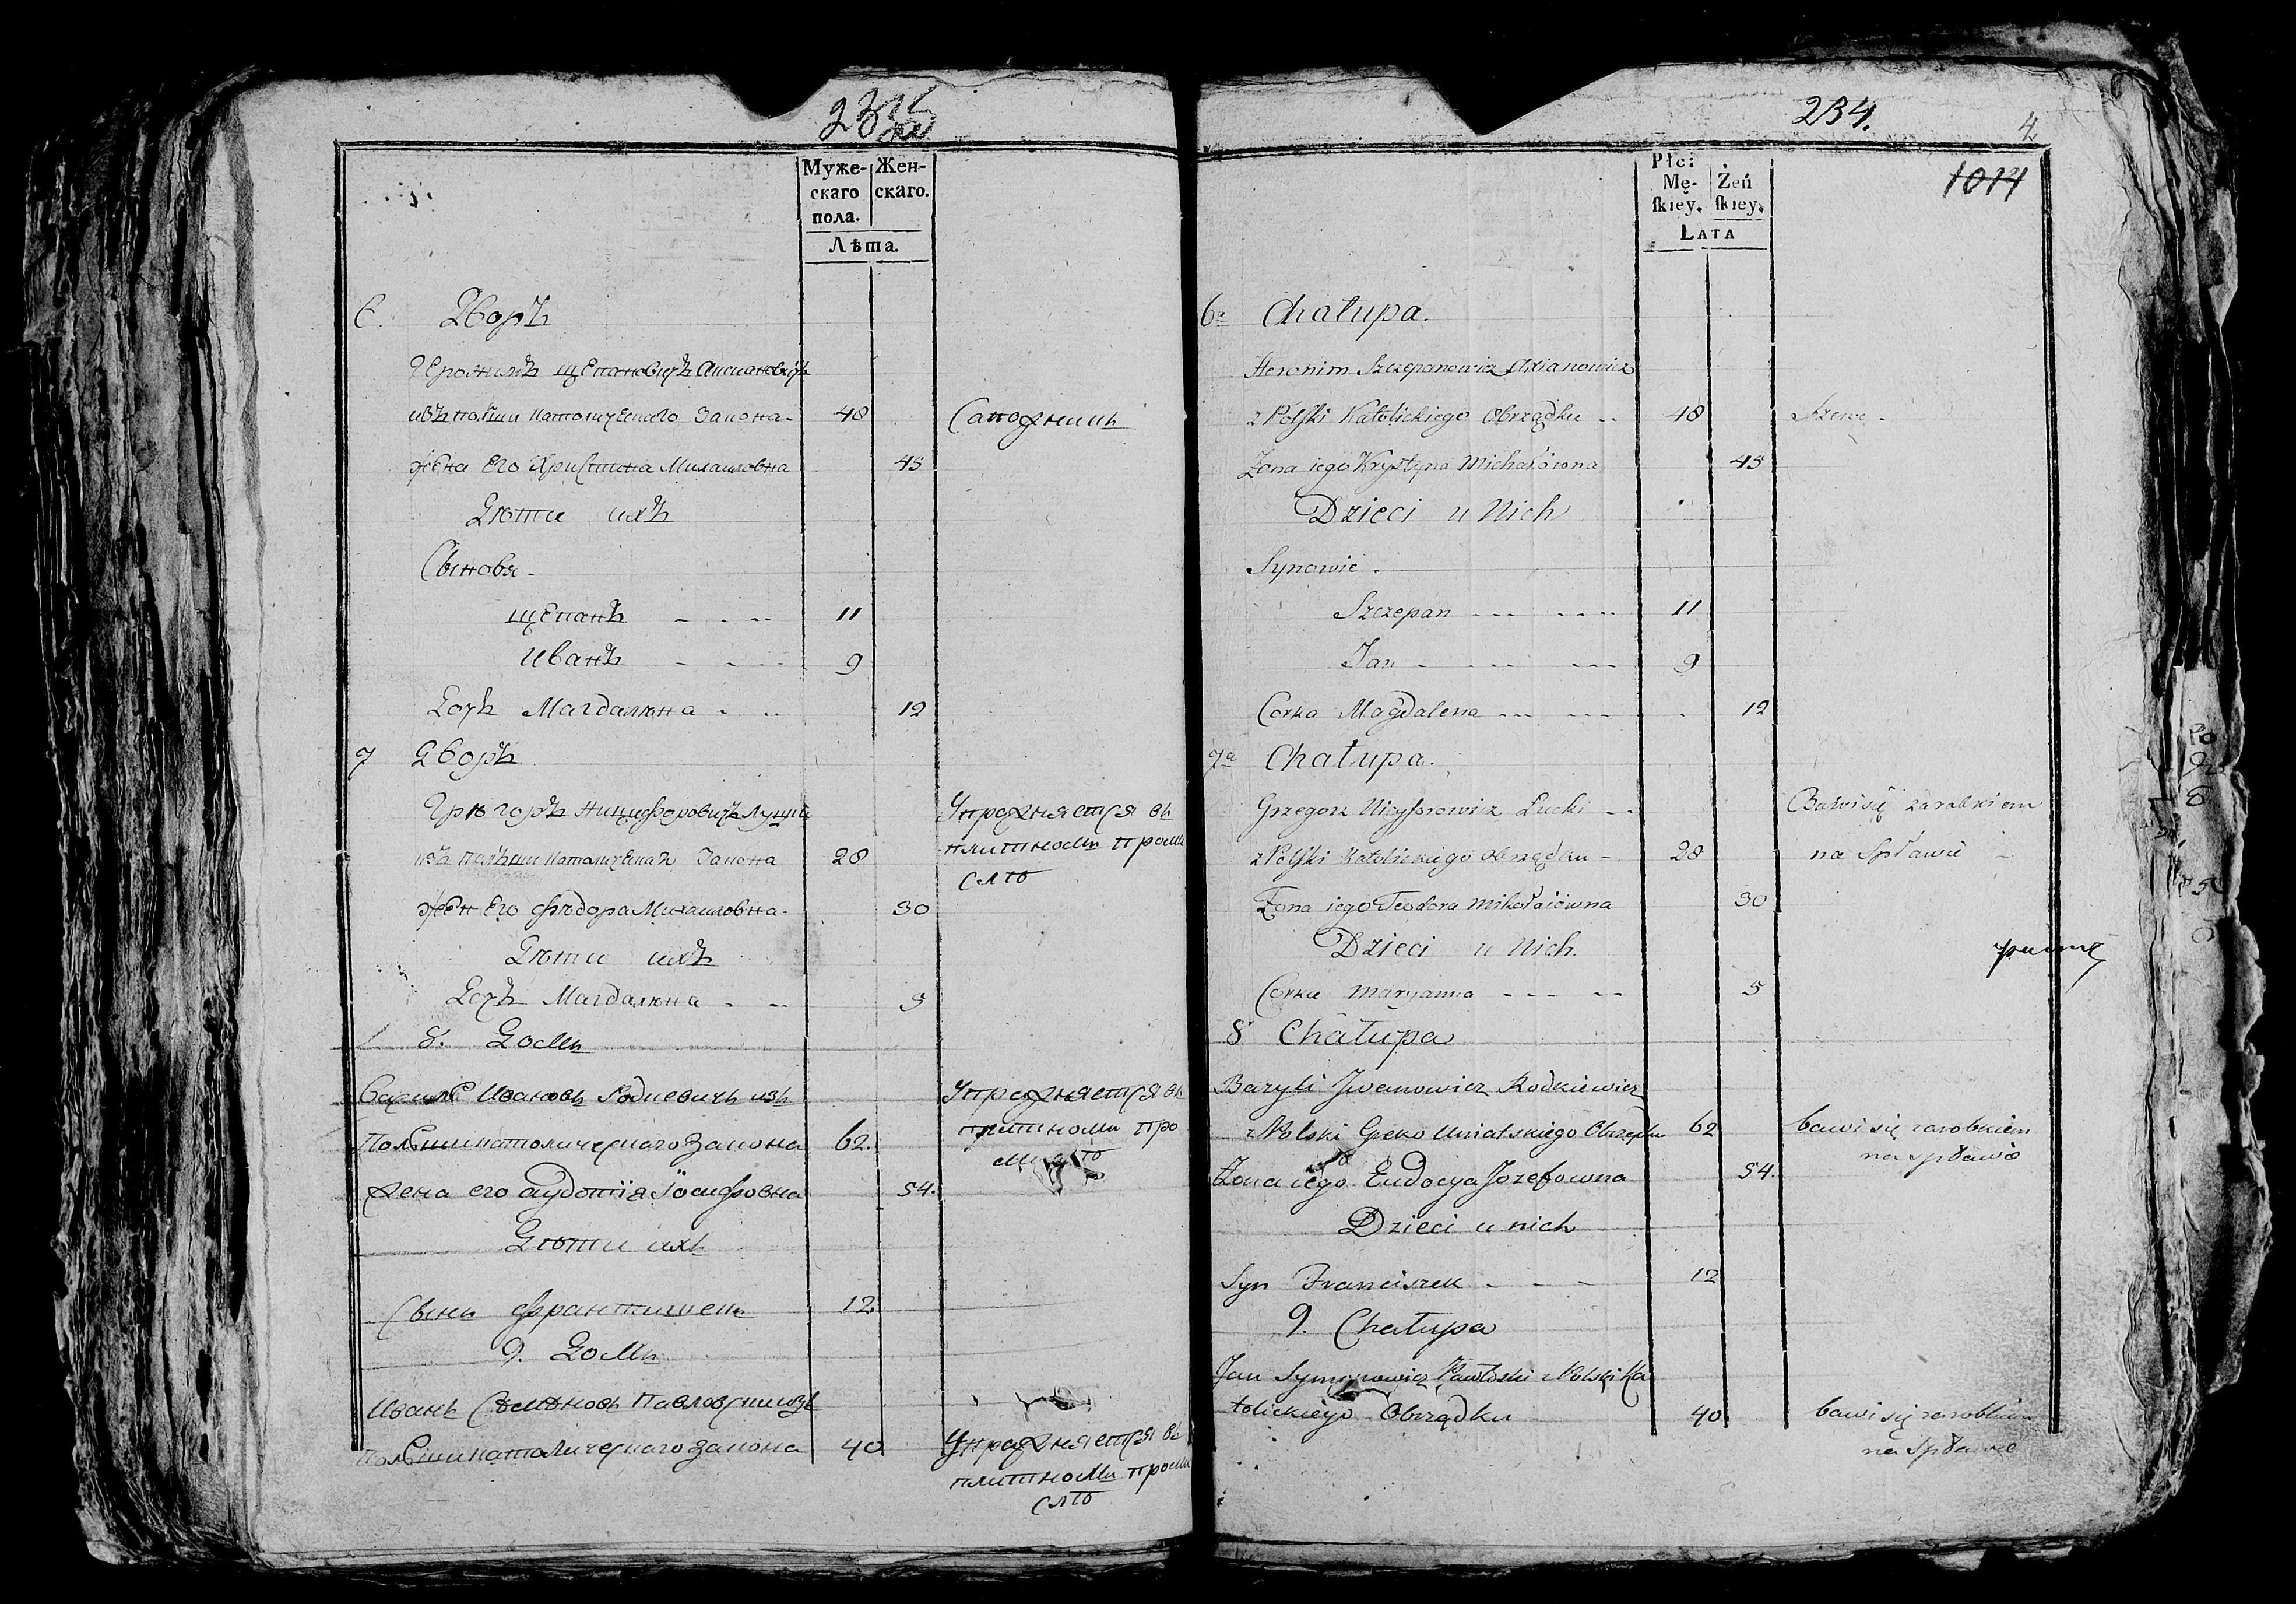 234.
4
1014
Муже-
скаго
пола.
Жен-
скаго.
Лѣта.
6. Дворъ
Геронимъ Щепановичъ Аксиановичъ
изъ полши католическаго закона - 48 Сапожникъ
жена Его Христина Михаиловна 45
Дѣти ихъ
Сыновя -
щЕпанъ 11
Иванъ 9
Дочь Магдалѣна 12
7 Дворъ
Григоръ Ницифоровичъ Луцкий Упражняется въ
изъ полши католическаго закона 28 плитномъ промы
слѣ
жен Его Фѣдора Михаиловна 30
Дѣти ихъ
Дочь Магдалѣна 5
8. Домъ
Базыле Ивановъ Родкевичъ изъ Упражняется въ
Полши католическаго закона 62. плитномъ про
мыслѣ
жена его аудотія Іосифовна 54.
Дѣти ихъ
Сынъ Франтишекъ 12
9. Домъ
Иванъ Сѣмѣновъ Павловски изъ
Полши католическаго закона 40 Упражняется въ
плитномъ промы
слѣ
Płci
Mę-
skiey.
Żeń
skiey.
LATA
6a Chałupa.
Heronim Szczepanowicz Axianowicz
z Polski Katolickiego Obrządku 48 Szewc -
Żona iego Krystyna Michałówna 45
Dzieci u Nich
Synowie.
Szczepan 11
Jan 9
Corka Magdalena 12
7a Chałupa.
Grzegorz Nicyforowicz Łucki Bawi się zarobkiem
z Polski Katolickiego obrządku - 28 na Spławie
Żona iego Teodora Mikołaiówna 30
Dzieci u Nich.
Corka Maryanna 5
8 Chałupa
Bazyli Jwanowicz Rodkiewicz
z Polski Greko Uniatskiego Obrządku 62 bawi się zarobkiem
na spławie
Żona iego Eudocya Jozefowna 54.
Dzieci u nich
Syn Franciszek 12
9. Chałupa
Jan Symonowicz Pawłoski z Polski Ka
tolickiego Obrządku 40 bawi się zarobkiem
na Spławie